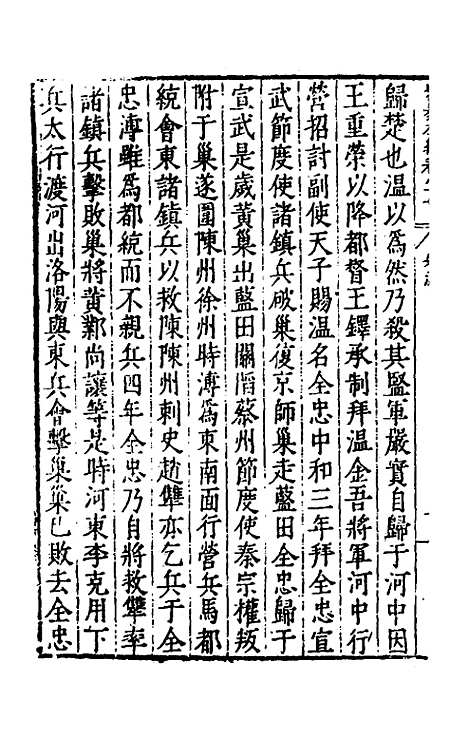 歸楚也温以爲然乃殺其監軍嚴實自歸于河中因
王重榮以降都督王鐸承制拜温金吾將軍河中行
營招討副使天子賜温名全忠中和三年拜全忠宣
武節度使諸鎮兵破巢復京師巢走藍田全忠歸于
宣武是歲黄巢出藍田關陷蔡州節度使秦宗權叛
附于巢遂圍陳州徐州時溥爲東南面行營兵馬都
統會東諸鎮兵以救陳陳州刺史趙犨亦乞兵于全
忠溥雖爲都統而不親兵四年全忠乃自將救犨率
諸鎮兵擊敗巢將黄鄴尚讓等是時河東李克用下
兵太行渡河出洛陽與東兵會擊巢巢已敗去全忠